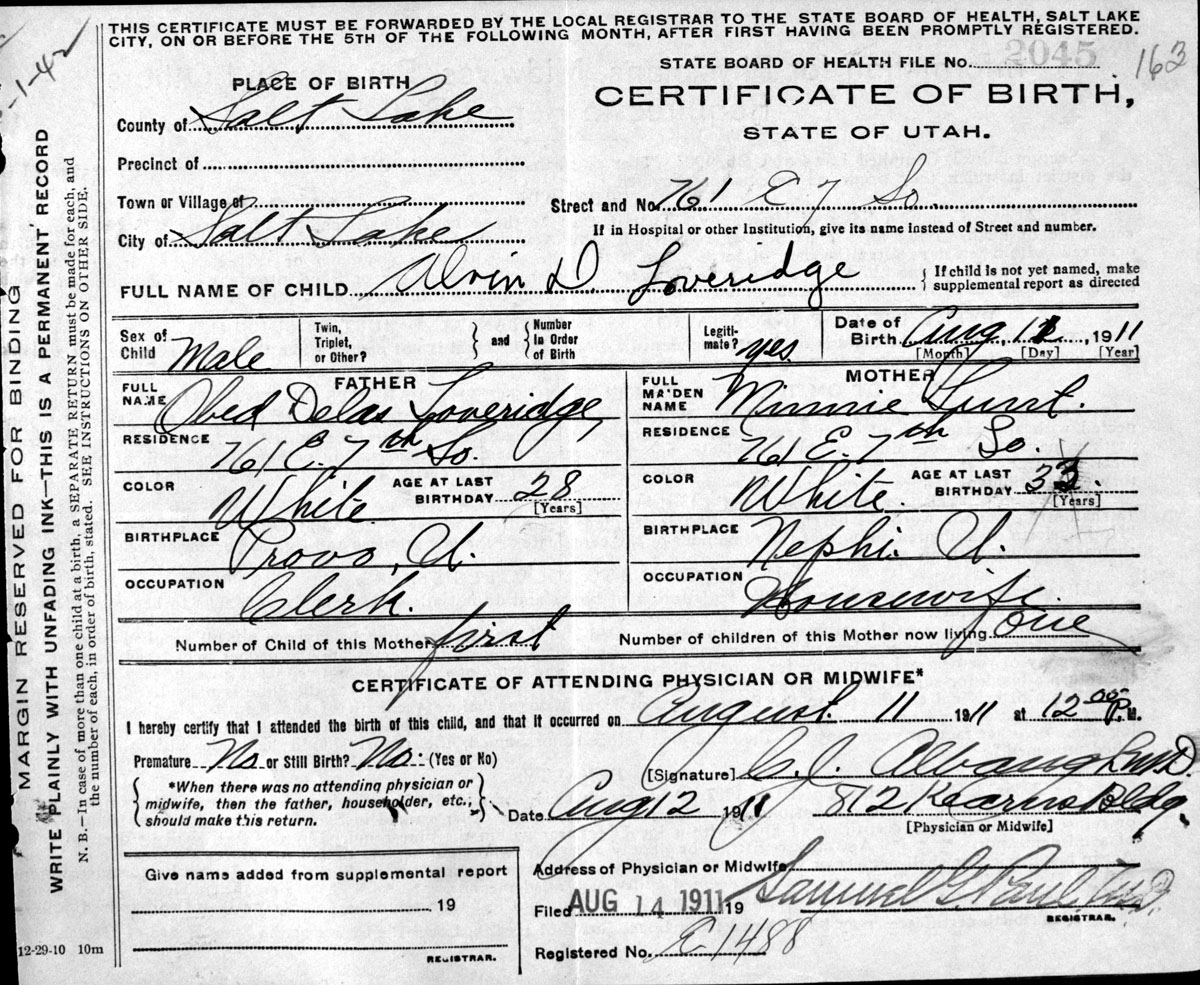 THIS CERTIFICATE MUST BE FORWARDED BY THE LOCAL REGISTRAR TO THE STATE BOARD OF HEALTH, SALT LAKE
CITY, ON OR BEFORE THE 5TH OF THE FOLLOWING MONTH, AFTER FIRST HAVING BEEN PROMPTLY REGISTERED.
STATE BOARD OF HEALTH FILE No. 2045
163
-1-42
MARGIN RESERVED FOR BINDING
WRITE PLAINLY WITH UNFADING INK—THIS IS A PERMANENT RECORD
N. B.—In case of more than one child at a birth, a SEPARATE RETURN must be made for each, and
the number of each, in order of birth, stated. SEE INSTRUCTIONS ON OTHER SIDE.
PLACE OF BIRTH
CERTIFICATE OF BIRTH,
STATE OF UTAH.
County of Salt Lake
Precinct of
Town or Village of
Street and No. 761 E 7 So.
City of Salt Lake
If in Hospital or other Institution, give its name instead of Street and number.
FULL NAME OF CHILD Alvin D Loveridge
If child is not yet named, make
supplemental report as directed
Sex of Child Male
Twin, Triplet, or Other?
and
Number in Order of Birth
Legiti-mate? yes
Date of Birth Aug. 11, 1911
[Month] [Day] [Year]
FATHER
FULL NAME Obed Delas Loveridge
RESIDENCE 761 E. 7th So.
COLOR White
AGE AT LAST BIRTHDAY 28
[Years]
BIRTHPLACE Provo, U.
OCCUPATION Clerk.
MOTHER
FULL MAIDEN NAME Minnie Lunt.
RESIDENCE 761 E. 7th So.
COLOR White.
AGE AT LAST BIRTHDAY 33.
[Years]
BIRTHPLACE Nephi. U.
OCCUPATION Housewife.
Number of Child of this Mother first
Number of children of this Mother now living one
CERTIFICATE OF ATTENDING PHYSICIAN OR MIDWIFE*
I hereby certify that I attended the birth of this child, and that it occurred on August. 11 1911 at 12 00 P. M.
Premature No or Still Birth? No. (Yes or No)
*When there was no attending physician or
midwife, then the father, householder, etc.,
should make this return.
[Signature]
Date Aug 12 1911
512 Kearns Bldg.
[Physician or Midwife]
Address of Physician or Midwife
Give name added from supplemental report
19
REGISTRAR.
Filed AUG 14 1911 19 Samuel G Paul M.D.
REGISTRAR.
Registered No. E1488
12-29-10 10m